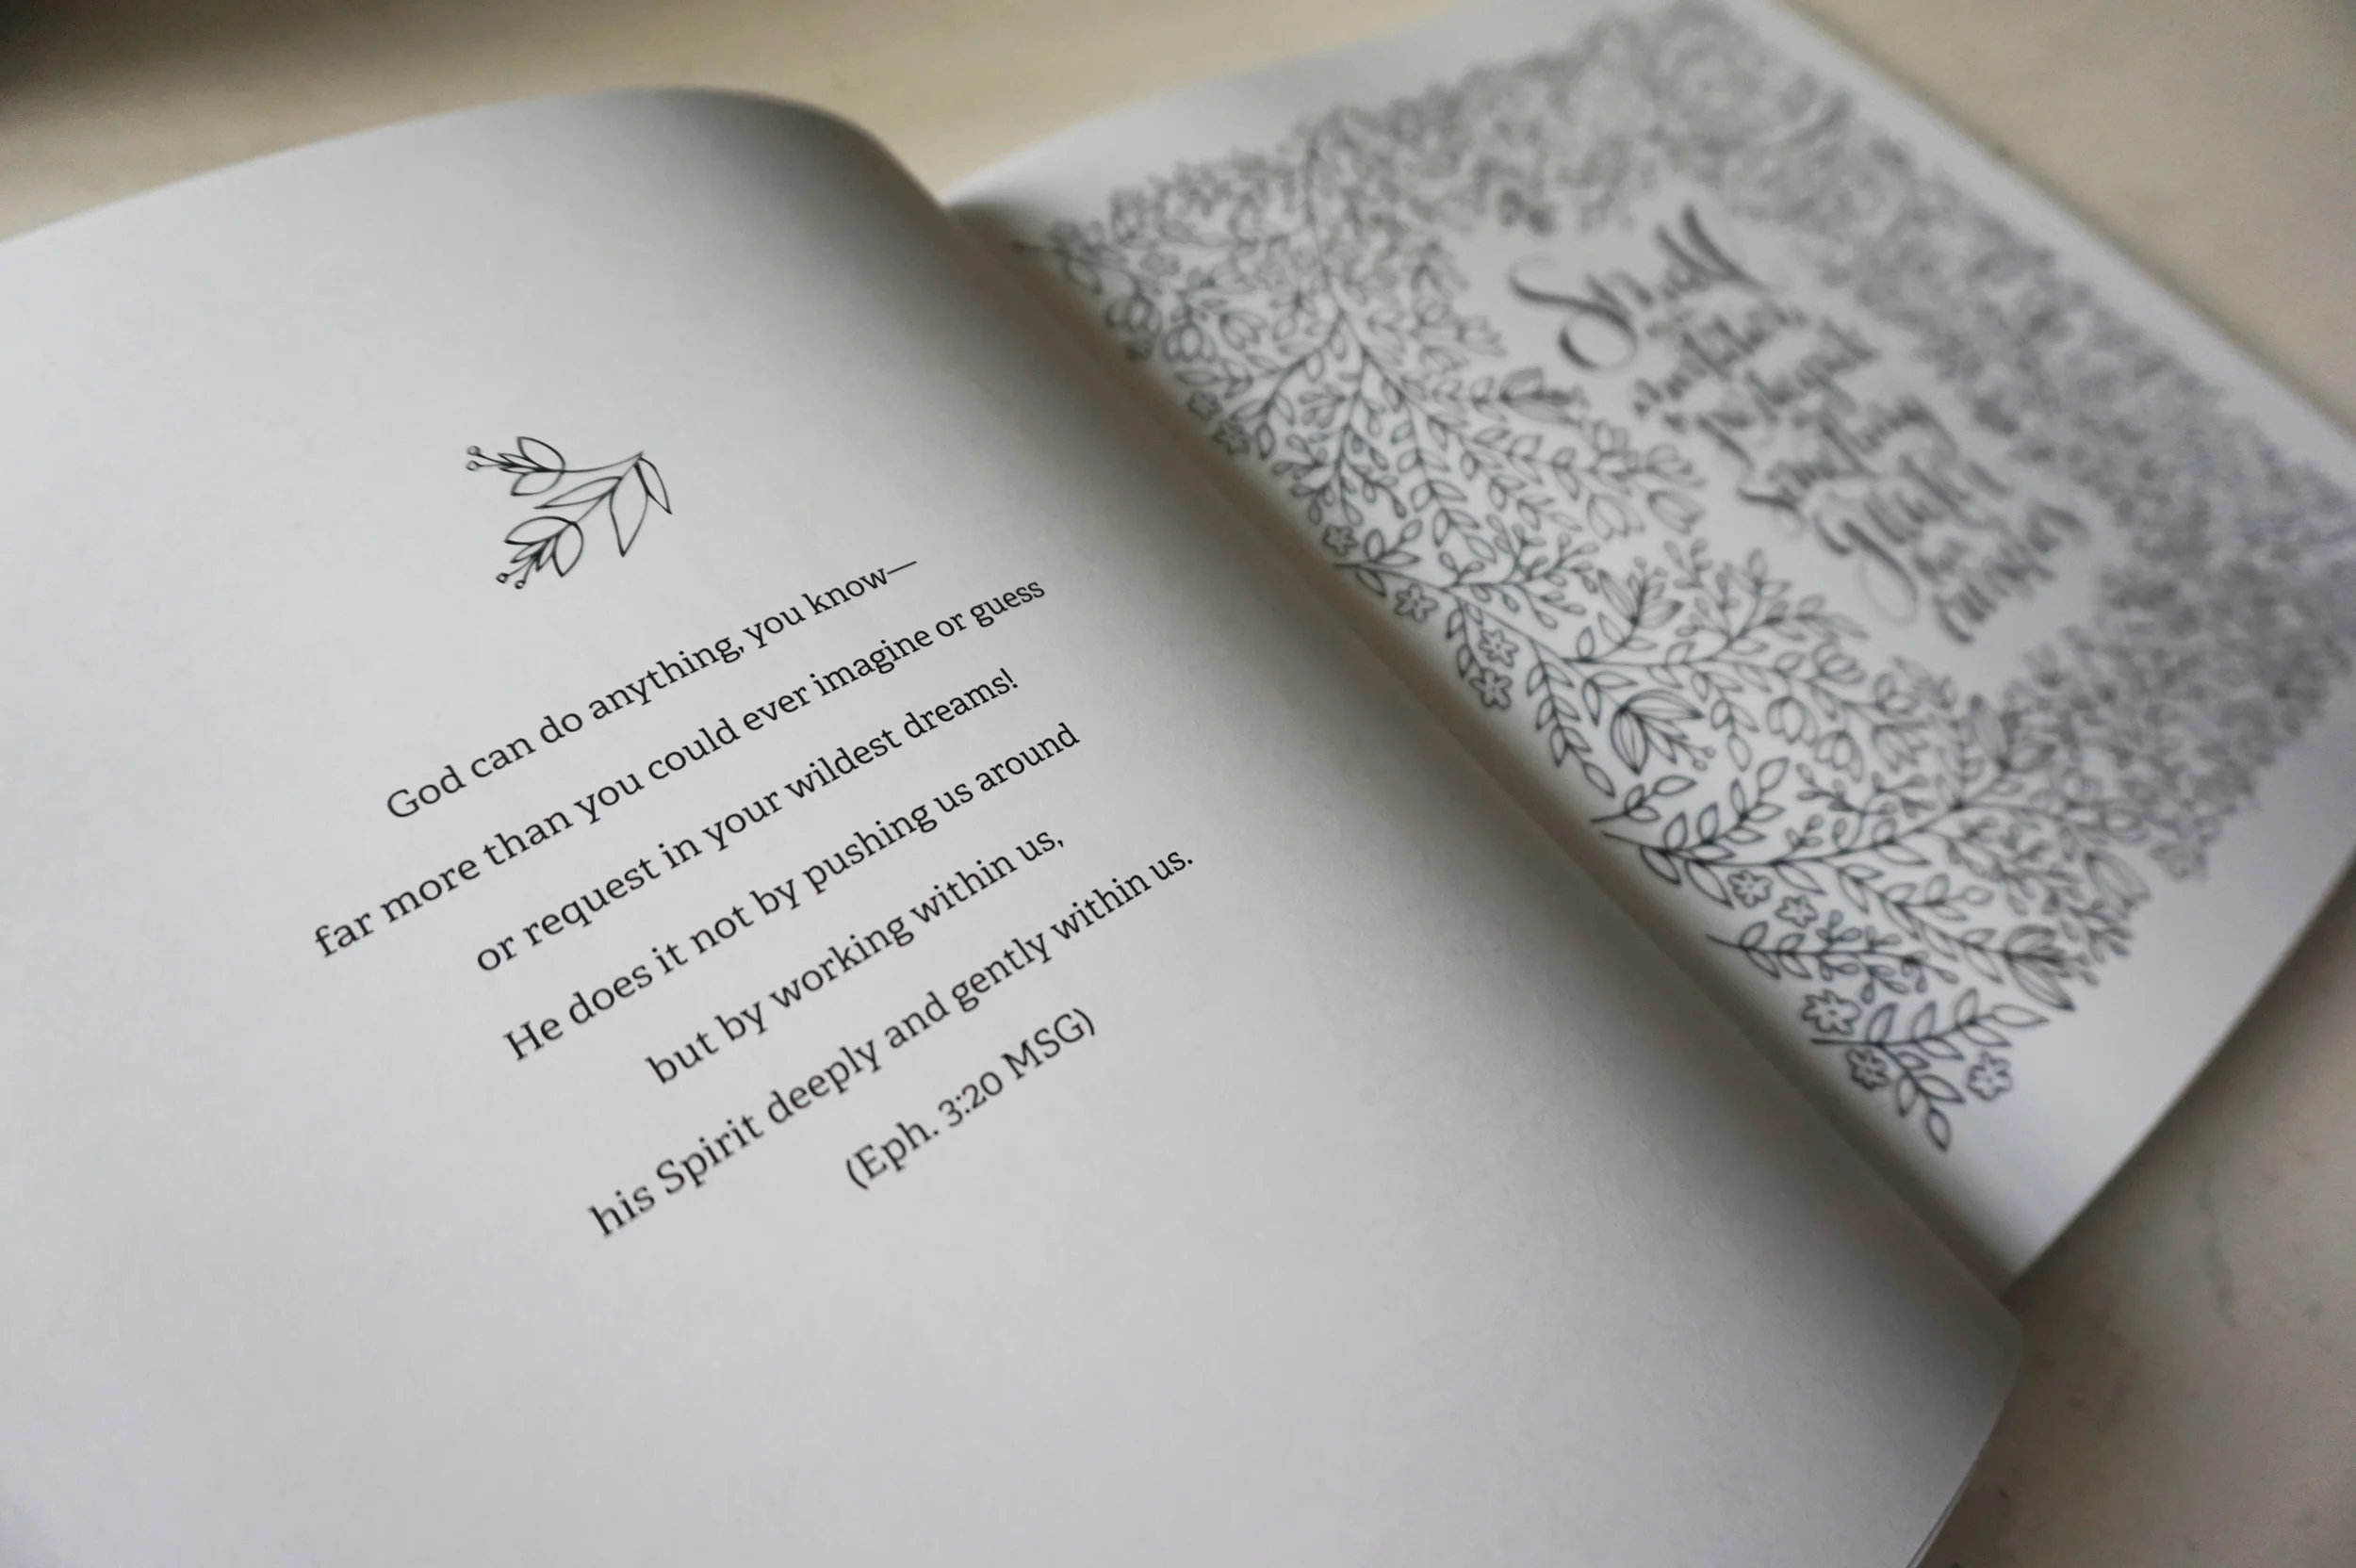 God can do anything, you know—
far more than you could ever imagine or guess
or request in your wildest dreams!
He does it not by pushing us around
but by working within us,
his Spirit deeply and gently within us.
(Eph. 3:20 MSG)
Small
to
something